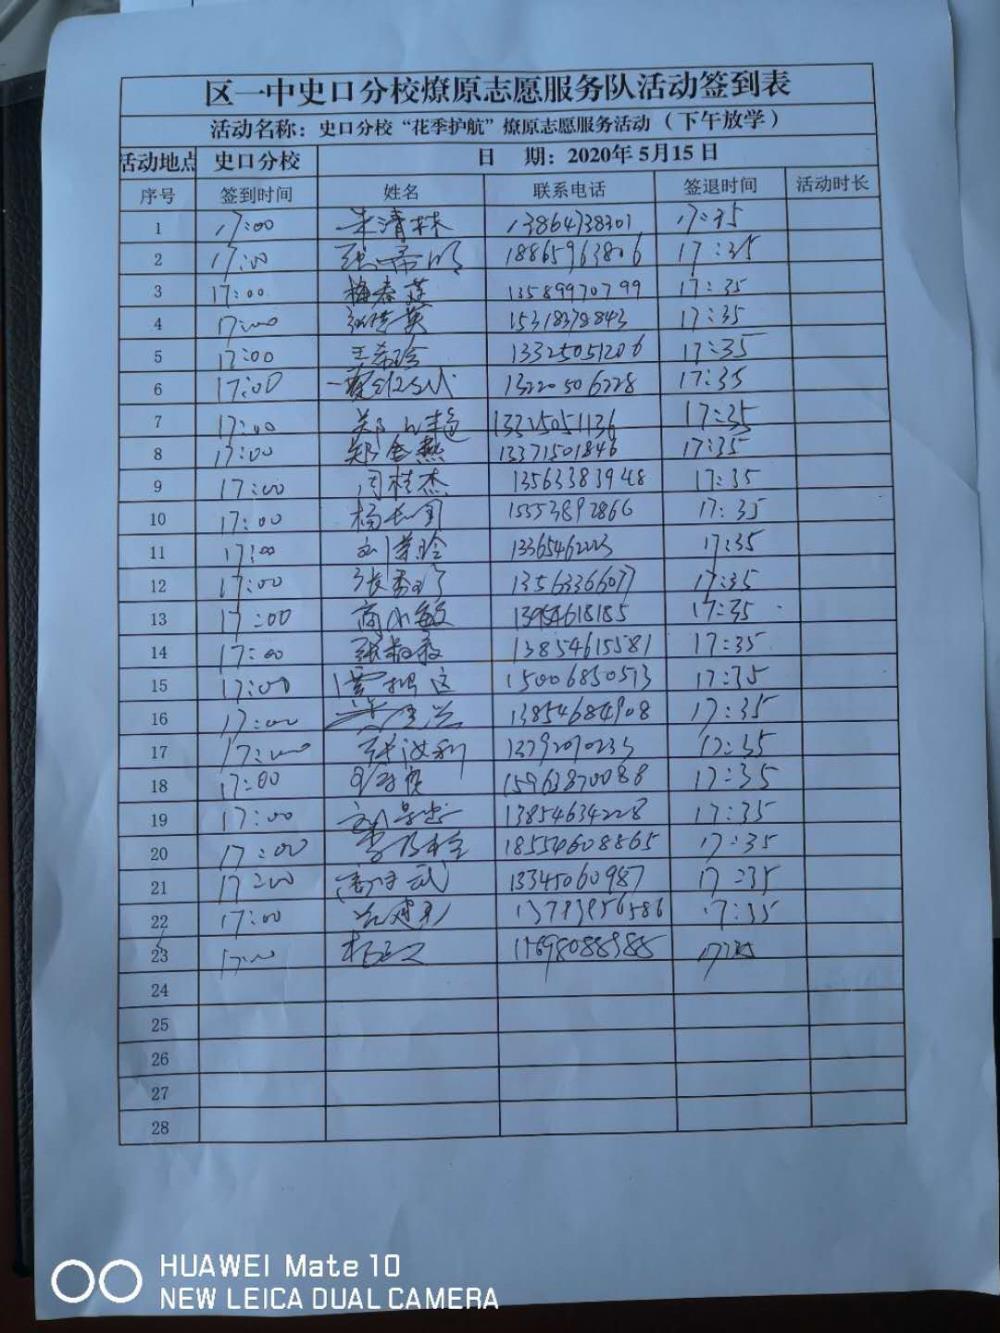 区一中史口分校燎原志愿服务队活动签到表
活动名称：史口分校“花季护航”燎原志愿服务活动（下午放学）
活动地点 史口分校 日 期：2020年5月15日
序号 签到时间 姓名 联系电话 签退时间 活动时长
1 17:00 朱清林 13864738301 17:35
2 17:00 18865963806 17:35
3 17:00 梅春莲 13589970799 17:35
4 17:00 15318378843 17:35
5 17:00 王希玲 13325051206 17:35
6 17:00 13220506228 17:35
7 17:00 郑 艳 13325051136 17:35
8 17:00 郑金燕 13371501846 17:35
9 17:00 周桂杰 13563383948 17:35
10 17:00 杨长国 15553892866 17:35
11 17:00 13365462223 17:35
12 17:00 13563366077 17:35
13 17:00 商小敏 17:35
14 17:00 张 13854615581 17:35
15 17:00 15006850573 17:35
16 17:00 13854684908 17:35
17 17:00 张汝利 13792070233 17:35
18 17:00 15963870088 17:35
19 17:00 刘景忠 13854634228 17:35
20 17:00 李乃 18554608565 17:35
21 17:00 13345060987 17:35
22 17:00 13793956586 17:35
23 17:00 17:35
24
25
26
27
28
HUAWEI Mate 10
NEW LEICA DUAL CAMERA